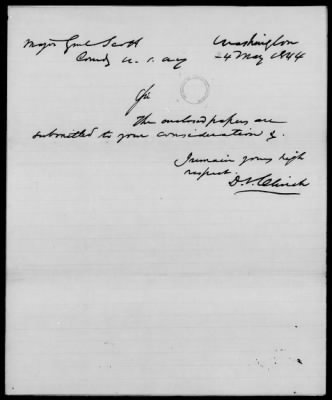 Major Genl Scott
Washington
Comdg U. S. Army
4 May 1844
Sir
The enclosed papers are
submitted to your consideration &.
I remain yours high
respect.
D. L. Clinch